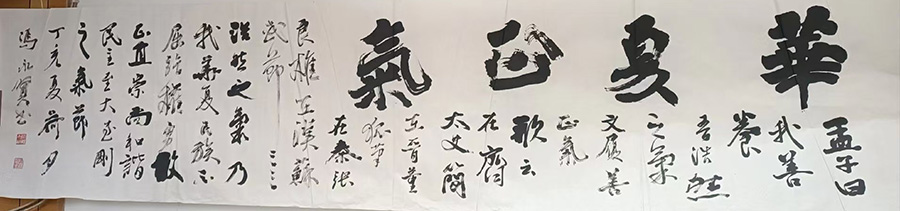 華夏正氣
孟子曰
我善
養
吾浩然
之氣
文履善
正氣
歌云
在齊
太史簡
在晉董
狐筆
在秦張
良椎在漢蘇
武節
浩然之氣乃
我華夏民族不
屈強權勇敢
正直崇尚和諧
民主至大至剛
之氣節
丁亥夏荷月
馮永寶書